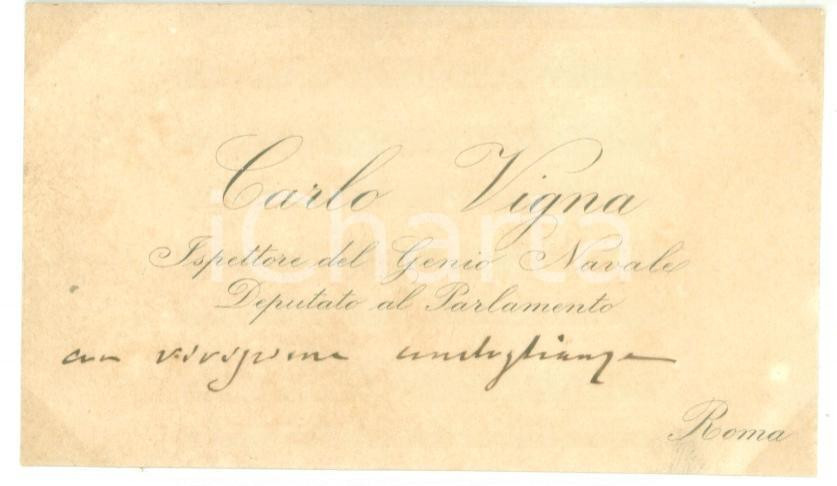 Carlo Vigna
iCharta
Ispettore del Genio Navale
Deputato al Parlamento
con vivissime condoglianze
Roma